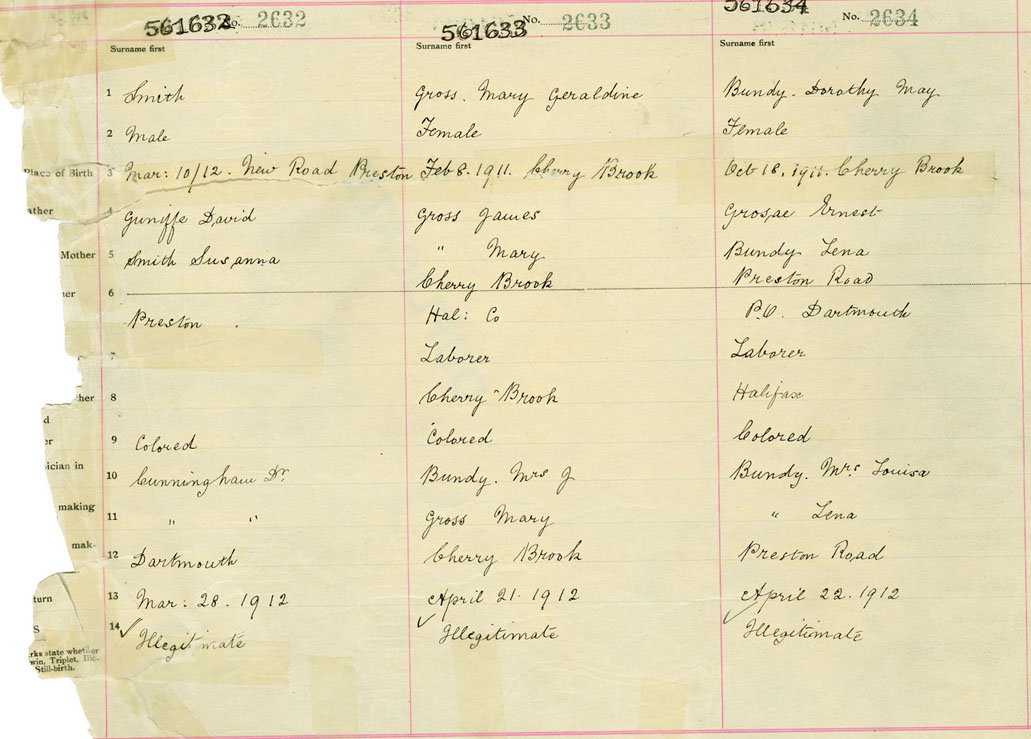 561632 No. 2632
561633 No. 2633
561634 No. 2634
Surname first
Surname first
Surname first
1 Smith
Gross. Mary Geraldine
Bundy. Dorothy May
2 Male
Female
Female
Place of Birth 3 Mar: 10/12. New Road Preston
Feb 8. 1911. Cherry Brook
Oct 18, 1911. Cherry Brook
ather 4 David
Gross James
Ernest
Mother 5 Smith Susanna
" Mary
Bundy Lena
her 6 Preston
Cherry Brook
Hal: Co
Preston Road
P.O. Dartmouth
7
Laborer
Laborer
ther 8
Cherry Brook
Halifax
d
er 9 Colored
Colored
Colored
sician in 10 Cunningham Dr.
Bundy. Mrs J
Bundy. Mrs. Louisa
making 11 " "
Gross Mary
" Lena
mak- 12 Dartmouth
Cherry Brook
Preston Road
turn 13 Mar: 28. 1912
April 21. 1912
April 22. 1912
S 14 ✓ Illegitimate
✓ Illegitimate
✓ Illegitimate
rks state whether
win, Triplet, Ille-
Still-birth.